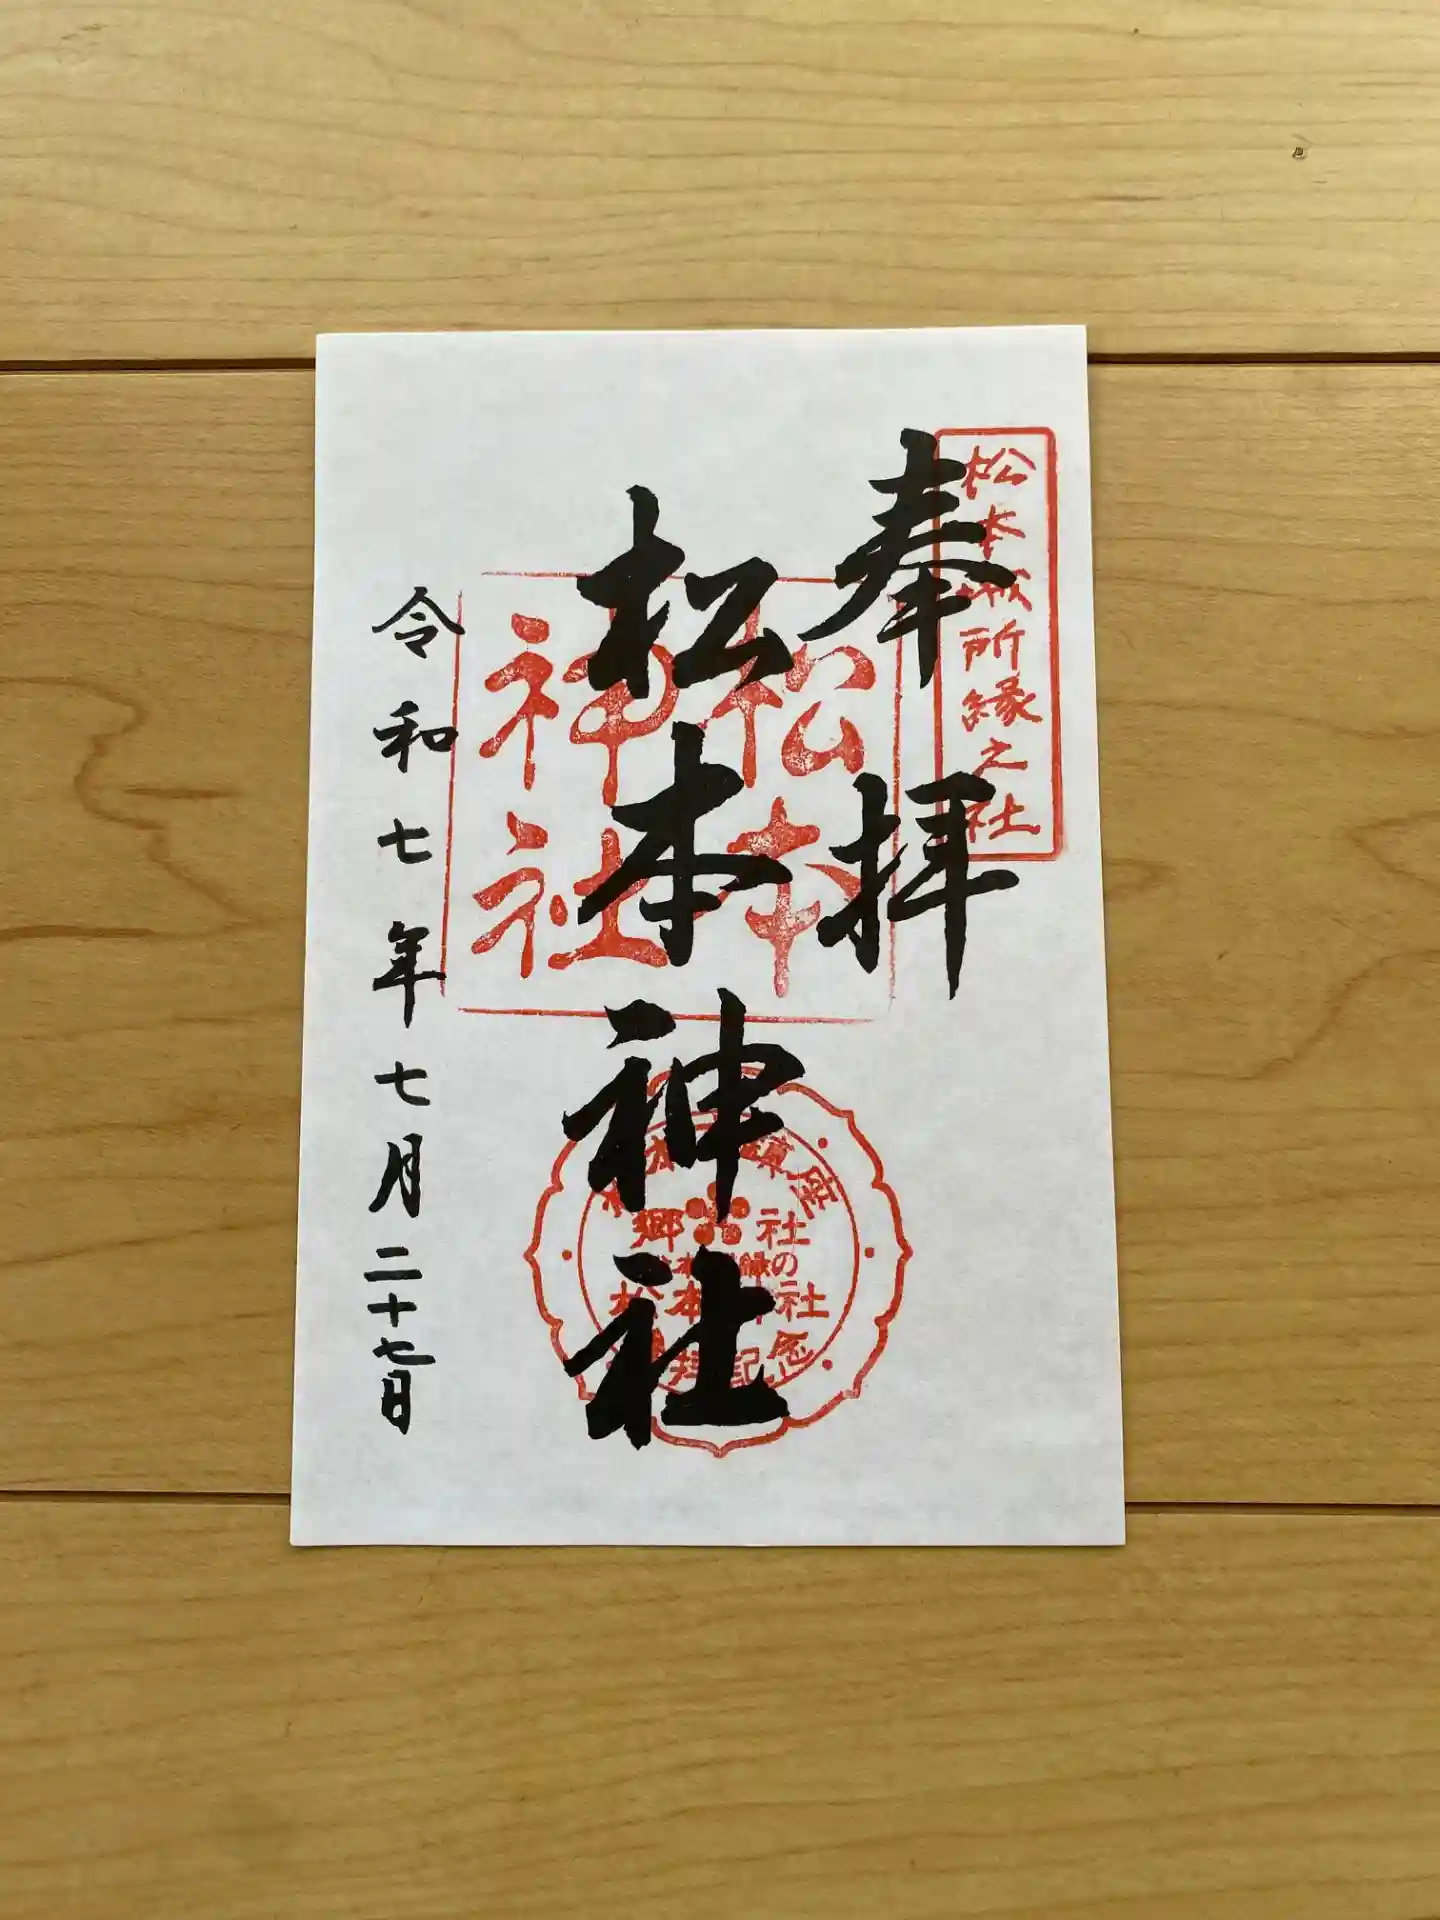 奉拝
松本城所縁之社
松本神社
松本
神社
郷社
松本神社
拝記念
令和七年七月二十七日